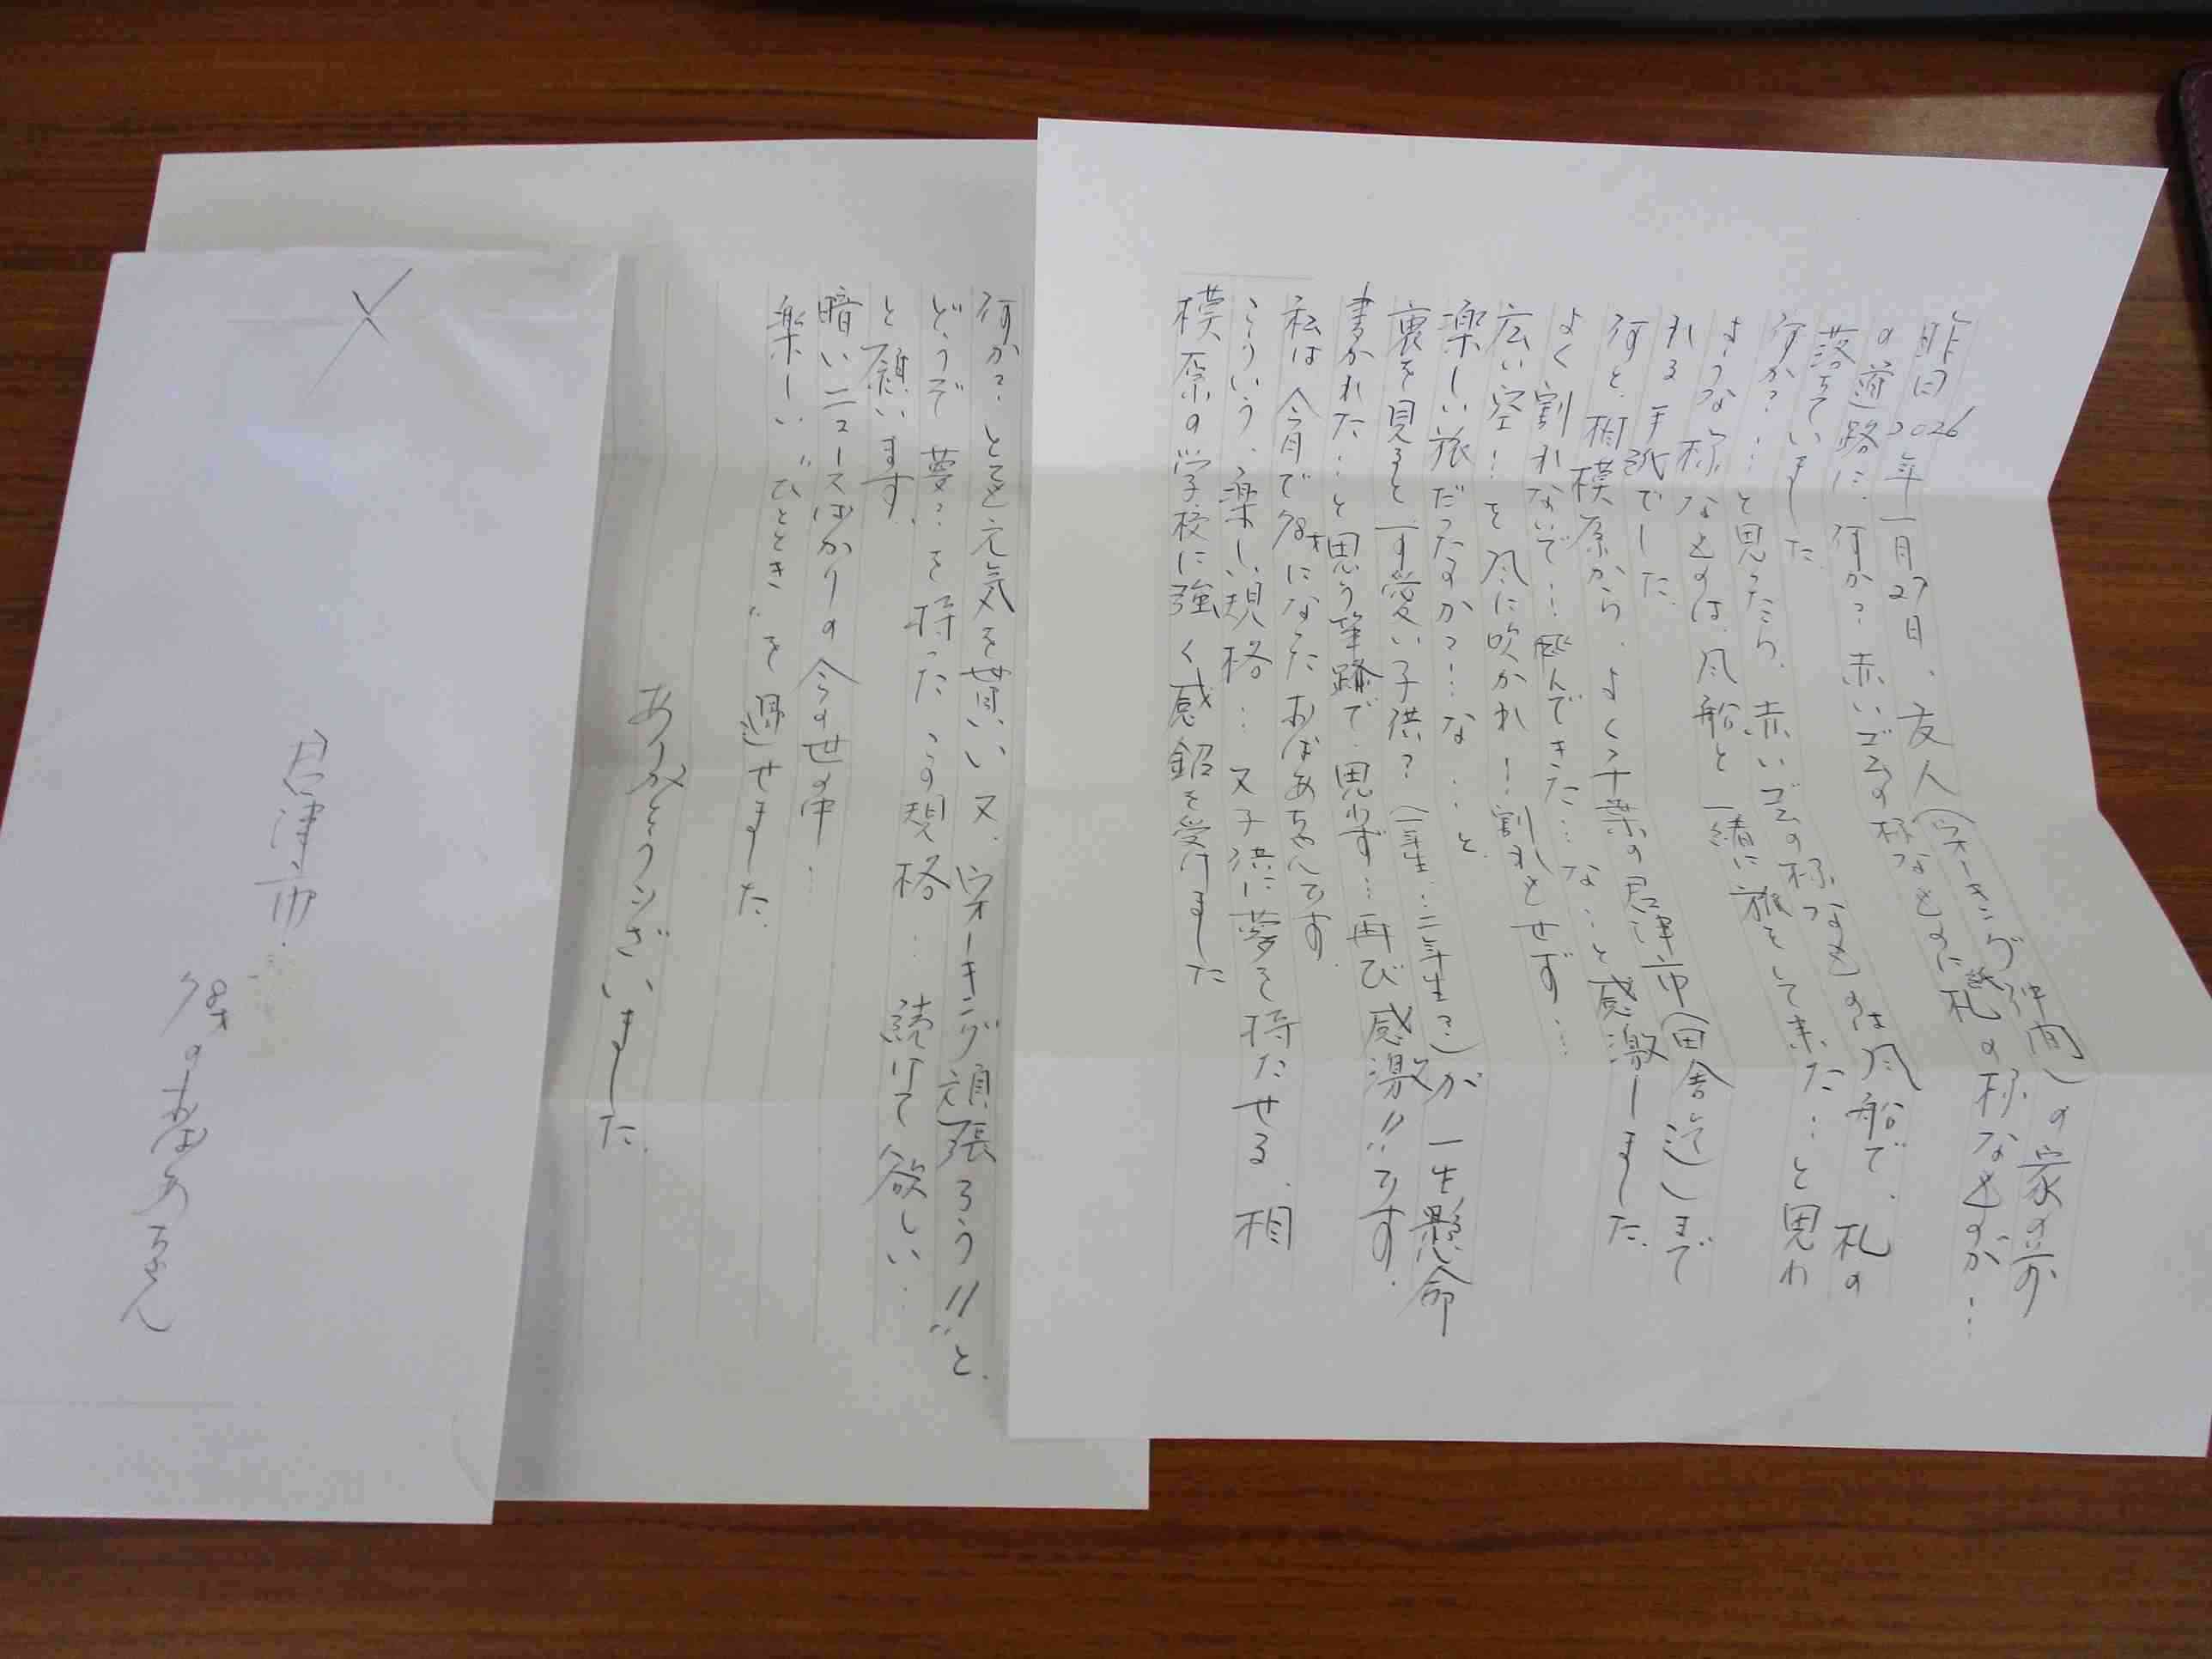 昨日2026年一月27日、友人(ウォーキング仲間)の家の前
の道路に、何か?赤いゴムの様なものに札の様なものが…
落ちていました
何か?…と思ったら、赤いゴムの様なものは風船で、札の
ような様なものは、風船と一緒に旅をして来た…と思わ
れる手紙でした
何と、相模原から、よく千葉の君津市(田舎迄)まで
よく割れないで…飛んできた…な…と感激しました
広い空!を風に吹かれ!割れもせず…
楽しい旅だったのか?…な…と
裏を見ると可愛い子供?(一年生…二年生?)が一生懸命
書かれた…と思う筆跡で、思わず…再び感激!!です。
私は今月で78才になったおばあちゃんです
こういう、楽しい規格…又子供に夢を持たせる、相
模原の学校に強く感銘を受けました
何か?とても元気を貰い又、ウォーキング頑張ろう!!"と
どうぞ夢?を持ったこの規格…続けて欲しい…
と願います、
暗いニュースばかりの今の世の中…
楽しい"ひととき"を過せました
ありがとうございました
〆
君津市
78才のおばあちゃん